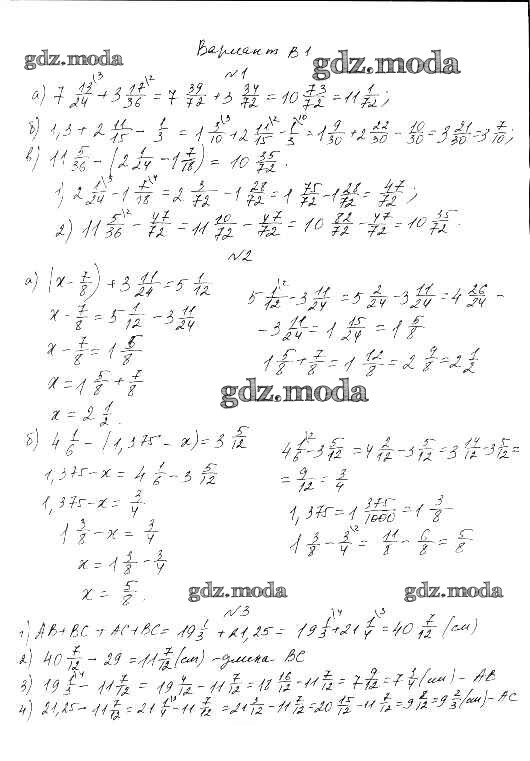 Вариант В1
gdz.moda
gdz.moda
№1
а) 7 13/24 \3 + 3 17/36 \2 = 7 39/72 + 3 34/72 = 10 73/72 = 11 1/72;
б) 1,3 + 2 11/15 - 1/3 = 1 3/10 \3 + 2 11/15 \2 - 1/3 \10 = 1 9/30 + 2 22/30 - 10/30 = 3 21/30 = 3 7/10;
в) 11 5/36 - (2 1/24 - 1 7/18) = 10 35/72.
1) 2 1/24 \3 - 1 7/18 \4 = 2 3/72 - 1 28/72 = 1 75/72 - 1 28/72 = 47/72;
2) 11 5/36 \2 - 47/72 = 11 10/72 - 47/72 = 10 82/72 - 47/72 = 10 35/72.
№2
а) (x - 7/8) + 3 11/24 = 5 1/12
x - 7/8 = 5 1/12 - 3 11/24
x - 7/8 = 1 5/8
x = 1 5/8 + 7/8
x = 2 1/2.
5 1/12 \2 - 3 11/24 = 5 2/24 - 3 11/24 = 4 26/24 -
- 3 11/24 = 1 15/24 = 1 5/8
1 5/8 + 7/8 = 1 12/8 = 2 4/8 = 2 1/2
gdz.moda
б) 4 1/6 - (1,375 - x) = 3 5/12
1,375 - x = 4 1/6 - 3 5/12
1,375 - x = 3/4
1 3/8 - x = 3/4
x = 1 3/8 - 3/4
x = 5/8.
4 1/6 \2 - 3 5/12 = 4 2/12 - 3 5/12 = 3 14/12 - 3 5/12 =
= 9/12 = 3/4
1,375 = 1 375/1000 = 1 3/8
1 3/8 - 3/4 \2 = 11/8 - 6/8 = 5/8
gdz.moda
gdz.moda
№3
1) AB + BC + AC + BC = 19 1/3 + 21,25 = 19 1/3 \4 + 21 1/4 \3 = 40 7/12 (см)
2) 40 7/12 - 29 = 11 7/12 (см) - длина BC
3) 19 1/3 \4 - 11 7/12 = 19 4/12 - 11 7/12 = 18 16/12 - 11 7/12 = 7 9/12 = 7 3/4 (см) - AB
4) 21,25 - 11 7/12 = 21 1/4 \3 - 11 7/12 = 21 3/12 - 11 7/12 = 20 15/12 - 11 7/12 = 9 8/12 = 9 2/3 (см) - AC